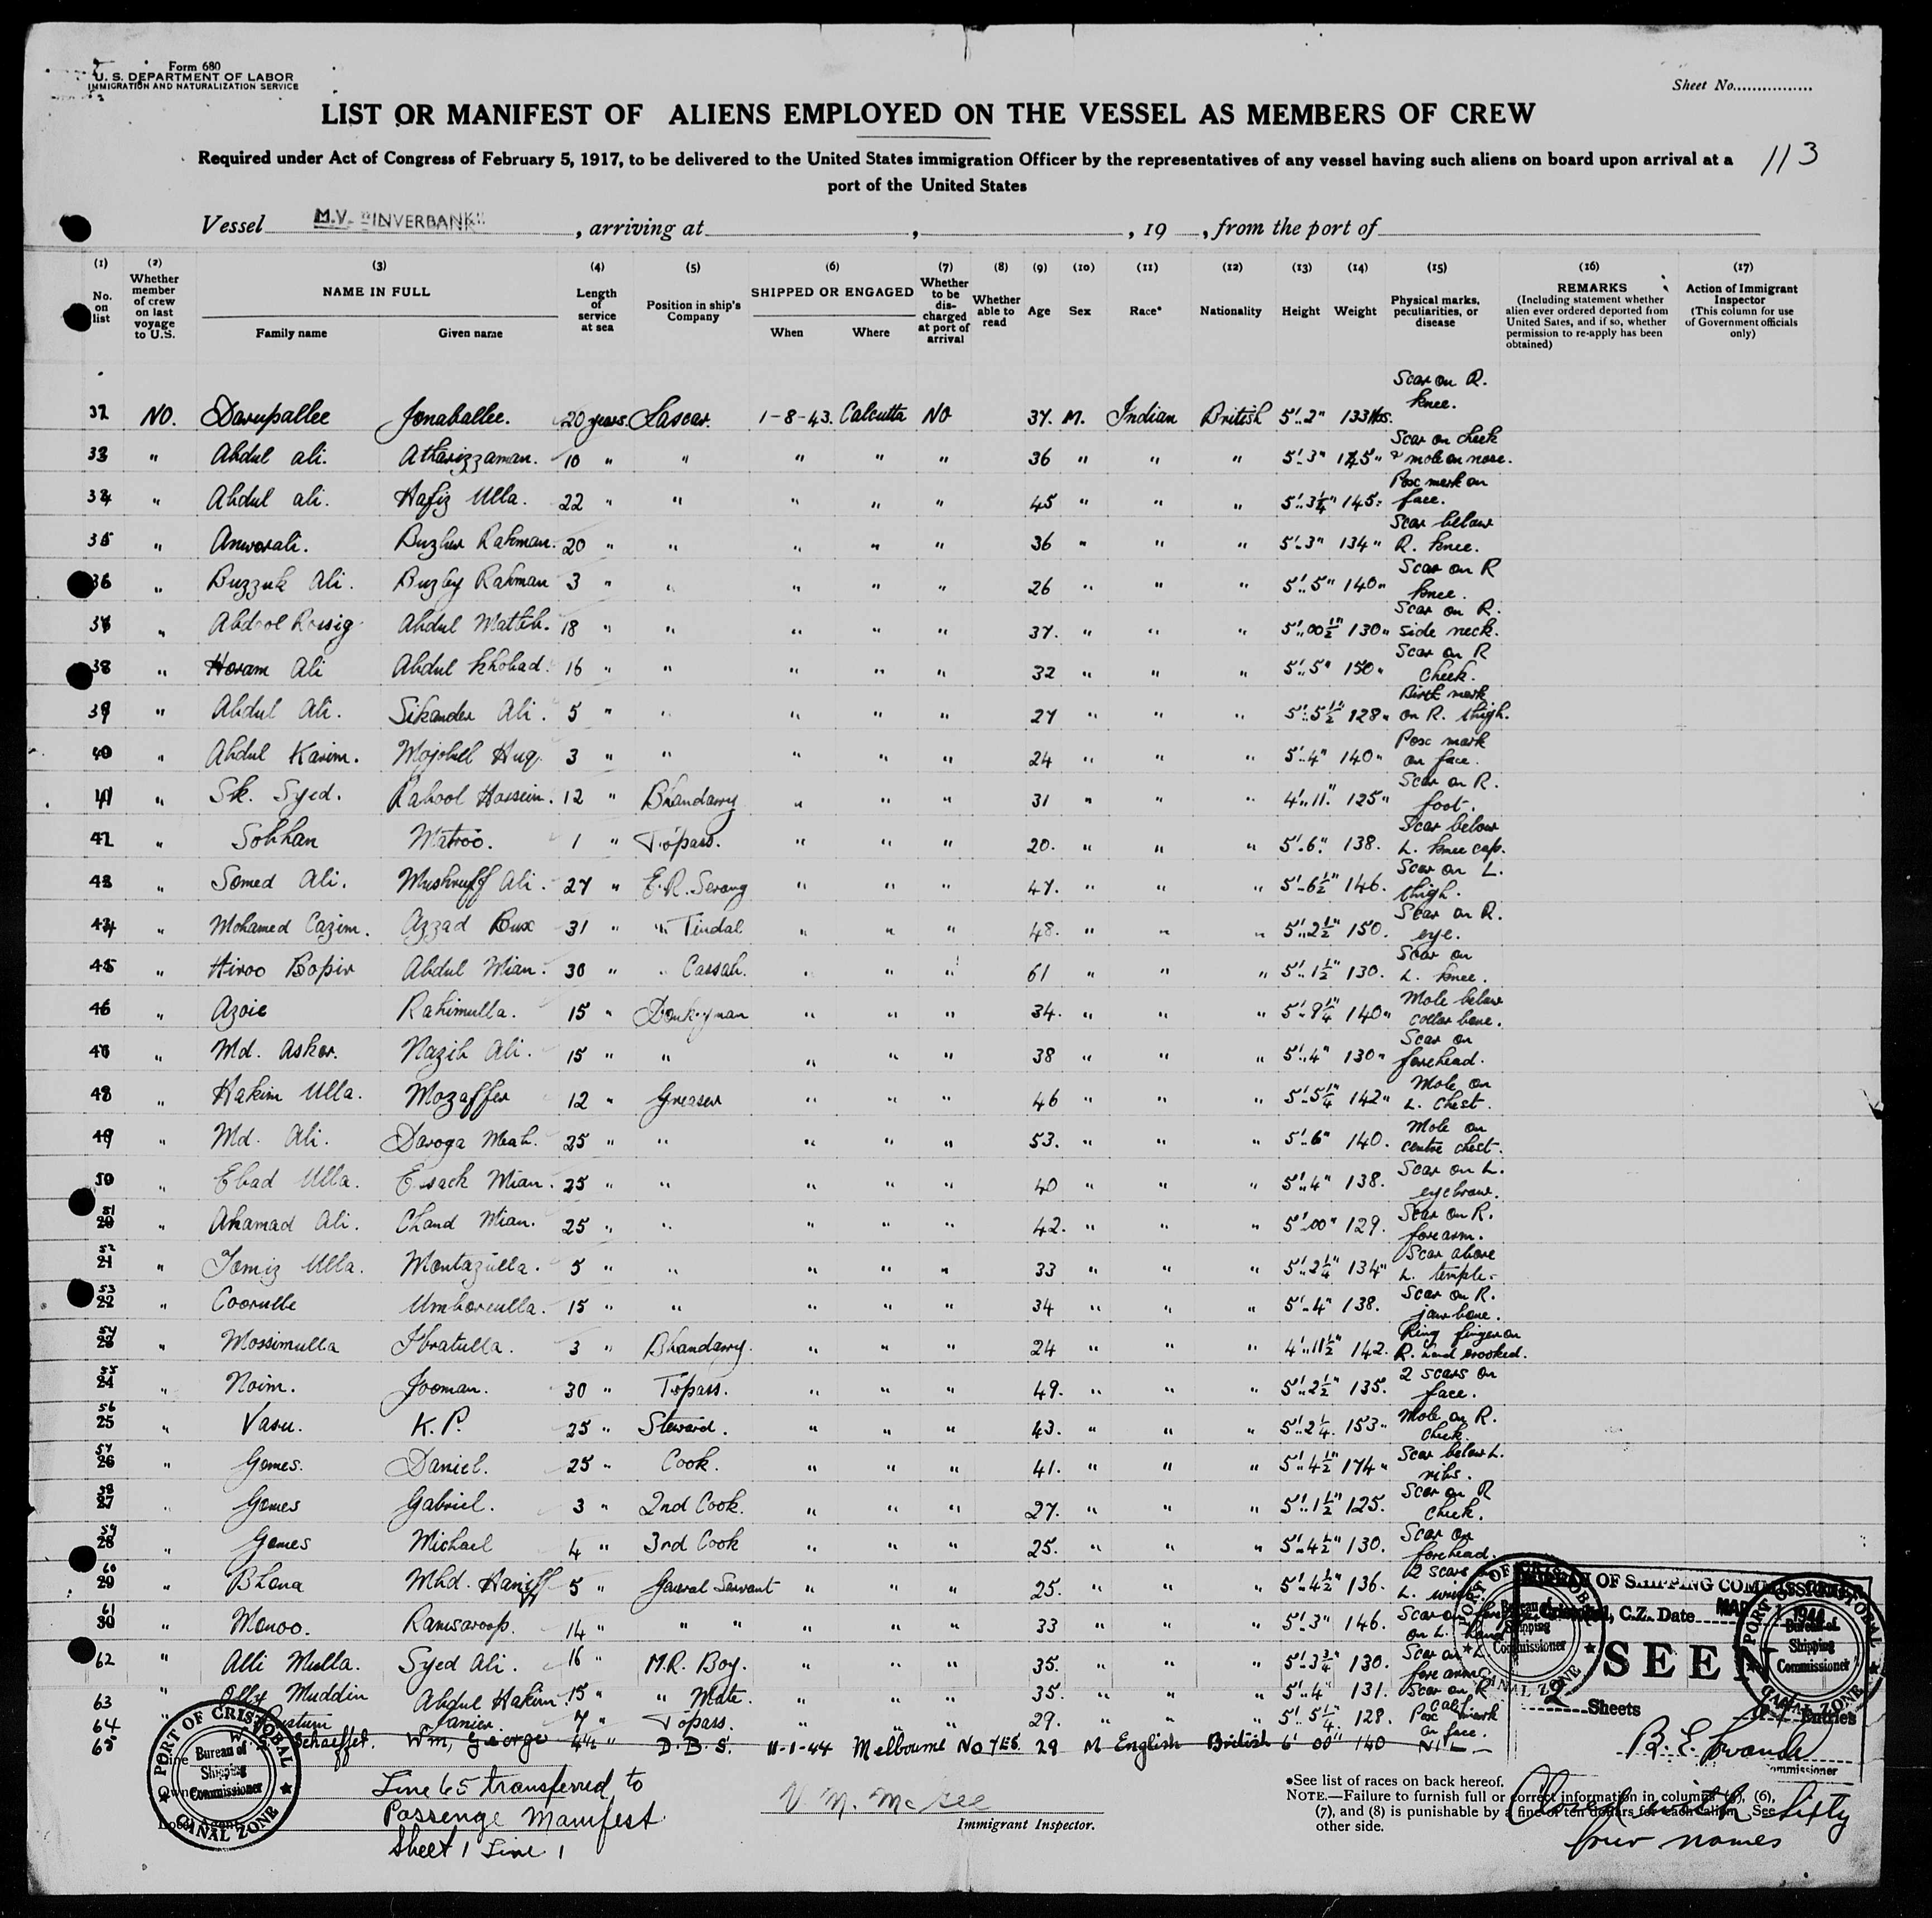 Form 680
U. S. DEPARTMENT OF LABOR
IMMIGRATION AND NATURALIZATION SERVICE
Sheet No.
LIST OR MANIFEST OF ALIENS EMPLOYED ON THE VESSEL AS MEMBERS OF CREW
Required under Act of Congress of February 5, 1917, to be delivered to the United States immigration Officer by the representatives of any vessel having such aliens on board upon arrival at a
port of the United States
113
Vessel M.V. "INVERBANK" , arriving at , , 19 , from the port of
(1) (2) (3) (4) (5) (6) (7) (8) (9) (10) (11) (12) (13) (14) (15) (16) (17)
No. on list Whether member of crew on last voyage to U.S. NAME IN FULL Family name Given name Length of service at sea Position in ship's Company SHIPPED OR ENGAGED When Where Whether to be discharged at port of arrival Whether able to read Age Sex Race* Nationality Height Weight Physical marks, peculiarities, or disease REMARKS (Including statement whether alien ever ordered deported from United Sates, and if so, whether permission to re-apply has been obtained) Action of Immigrant Inspector (This column for use of Government officials only)
32 NO. Darupallee Jonaballee. 20 years. Lascar. 1-8-43. Calcutta NO 37. M. Indian British 5'..2" 133 lbs. Scar on R. knee.
33 " Abdul ali. Atharizzaman. 10 " " " " " 36 " " " 5'.3" 145 " Scar on cheek & mole on nose.
34 " Abdul ali. Hafiz Ulla. 22 " " " " " 45 " " " 5'.3¼" 145. Pox mark on face.
35 " Anworali. Buzlur Rahman. 20 " " " " " 36 " " " 5'.3" 134 " Scar below R. knee.
36 " Buzzuk Ali. Buzley Rahman 3 " " " " " 26 " " " 5'.5" 140 " Scar on R knee.
" Abdool Abdul 18 " " " " " 37. " " " 5'.00½" 130 " Scar on R. side neck.
38 " Horam Ali Abdul Khobad. 16 " " " " " 32 " " " 5'.5" 150 " Scar on R Cheek.
39 " Abdul Ali. Sikander Ali. 5 " " " " " 27 " " " 5'.5½" 128 " Birth mark on R. thigh.
40 " Abdul Karim. Mojobell Huq. 3 " " " " " 24 " " " 5'.4" 140 " Pox mark on face.
41 " Sk. Syed. Rahool Hossein. 12 " Bhandarry " " " 31 " " " 4'.11" 125 " Scar on R. foot.
42 " Sobhan Matroo. 1 " Topass. " " " 20. " " " 5'.6" 138. Scar below L. knee cap.
43 " Somed Ali. Mushruff Ali. 27 " E.R. Serang " " " 47. " " " 5'.6½" 146. Scar on L. thigh.
44 " Mohamed Cazim. Azzad Bux 31 " " Tindal " " " 48. " " " 5'.2½" 150. Scar on R. eye.
45 " Hiroo Bopir Abdul Mian. 30 " " Cassab. " " " 61 " " " 5'.1½" 130. Scar on L. knee.
46 " Azoie Rahimulla. 15 " Donkeyman " " " 34. " " " 5'.9¼" 140 " Mole below collar bone.
" Md. Asker. Nazib Ali. 15 " " " " " 38 " " " 5'.4" 130 " Scar on forehead.
48 " Hakim Ulla. Mozaffer 12 " Greaser " " " 46 " " " 5'.5¼" 142 " Mole on L. Chest.
49 " Md. Ali. Daroga Meah. 25 " " " " " 53. " " " 5'.6" 140. Mole on centre chest.
50 " Ebad Ulla. Esack Mian. 25 " " " " " 40 " " " 5'.4" 138. Scar on L. eyebrow.
51 20 " Ahamad Ali. Chand Mian. 25 " " " " " 42. " " " 5'.00" 129. Scar on R. forearm.
52 21 " Tomiz Ulla. Montazulla. 5 " " " " " 33 " " " 5'.2¼" 134" Scar above L. temple.
53 22 " Coorulle Umboreulla. 15 " " " " " 34 " " " 5'.4" 138. Scar on R. jaw bone.
54 23 " Mossimulla Ibratulla. 3 " Bhandarry. " " " 24 " " " 4'.11½" 142. Ring finger on R. hand crooked.
55 24 " Noim. Jooman. 30 " Topass. " " " 49. " " " 5'.2½" 135. 2 scars on face.
56 25 " Vasu. K.P. 25 " Steward. " " " 43. " " " 5'.2¼ 153 " Mole on R. Cheek.
57 26 " Gomes. Daniel. 25 " Cook. " " " 41. " " " 5'.4½" 174 " Scar below L. ribs.
58 27 " Gomes Gabriel. 3 " 2nd Cook. " " " 27. " " " 5'.1½" 125. Scar on R Cheek.
59 28 " Gomes Michael 4 " 3rd Cook " " " 25. " " " 5'.4½" 130. Scar on forehead.
60 29 " Bhona Mhd. Haniff 5 " General Servant " " " 25. " " " 5'.4½" 136. 2 scars L. wrist
61 30 " Monoo. Ramsaroop. 14 " " " " " " 33 " " " 5'.3" 146. Scar on on L. hand
62 " Alli Mulla. Syed Ali. 16 " M.R. Boy. " " " 35. " " " 5'.3¾" 130. Scar on L forearm
63 " Olly Muddin Abdul Hakim 15 " " Mate. " " " 35. " " " 5'.4" 131. Scar on R calf
64 " 7 " Topass. " " " 29. " " " 5'.5¼" 128. Pox mark on face.
65 Schaeffer. Wm, George 4½ " D.B.S. 11-1-44 Melbourne NO YES 29 M English British 6' 00" 140 NIL
Line 65 transferred to
Passenge Manifest
Sheet 1 Line 1
V. N. McGee
Immigrant Inspector.
*See list of races on back hereof.
NOTE.—Failure to furnish full or correct information in columns (6),
(7), and (8) is punishable by a fine of ten dollars for each alien. See
other side.
Closed with Sixty
four names
PORT OF CRISTOBAL
Bureau of
Shipping
Commissioner
CANAL ZONE
BUREAU OF SHIPPING COMMISSIONER
Cristobal, C.Z. Date MAR 1 1944
SEEN
2 Sheets Entries
Commissioner
PORT OF CRISTOBAL
Bureau of
Shipping
Commissioner
CANAL ZONE
PORT OF CRISTOBAL
Bureau of
Shipping
Commissioner
CANAL ZONE